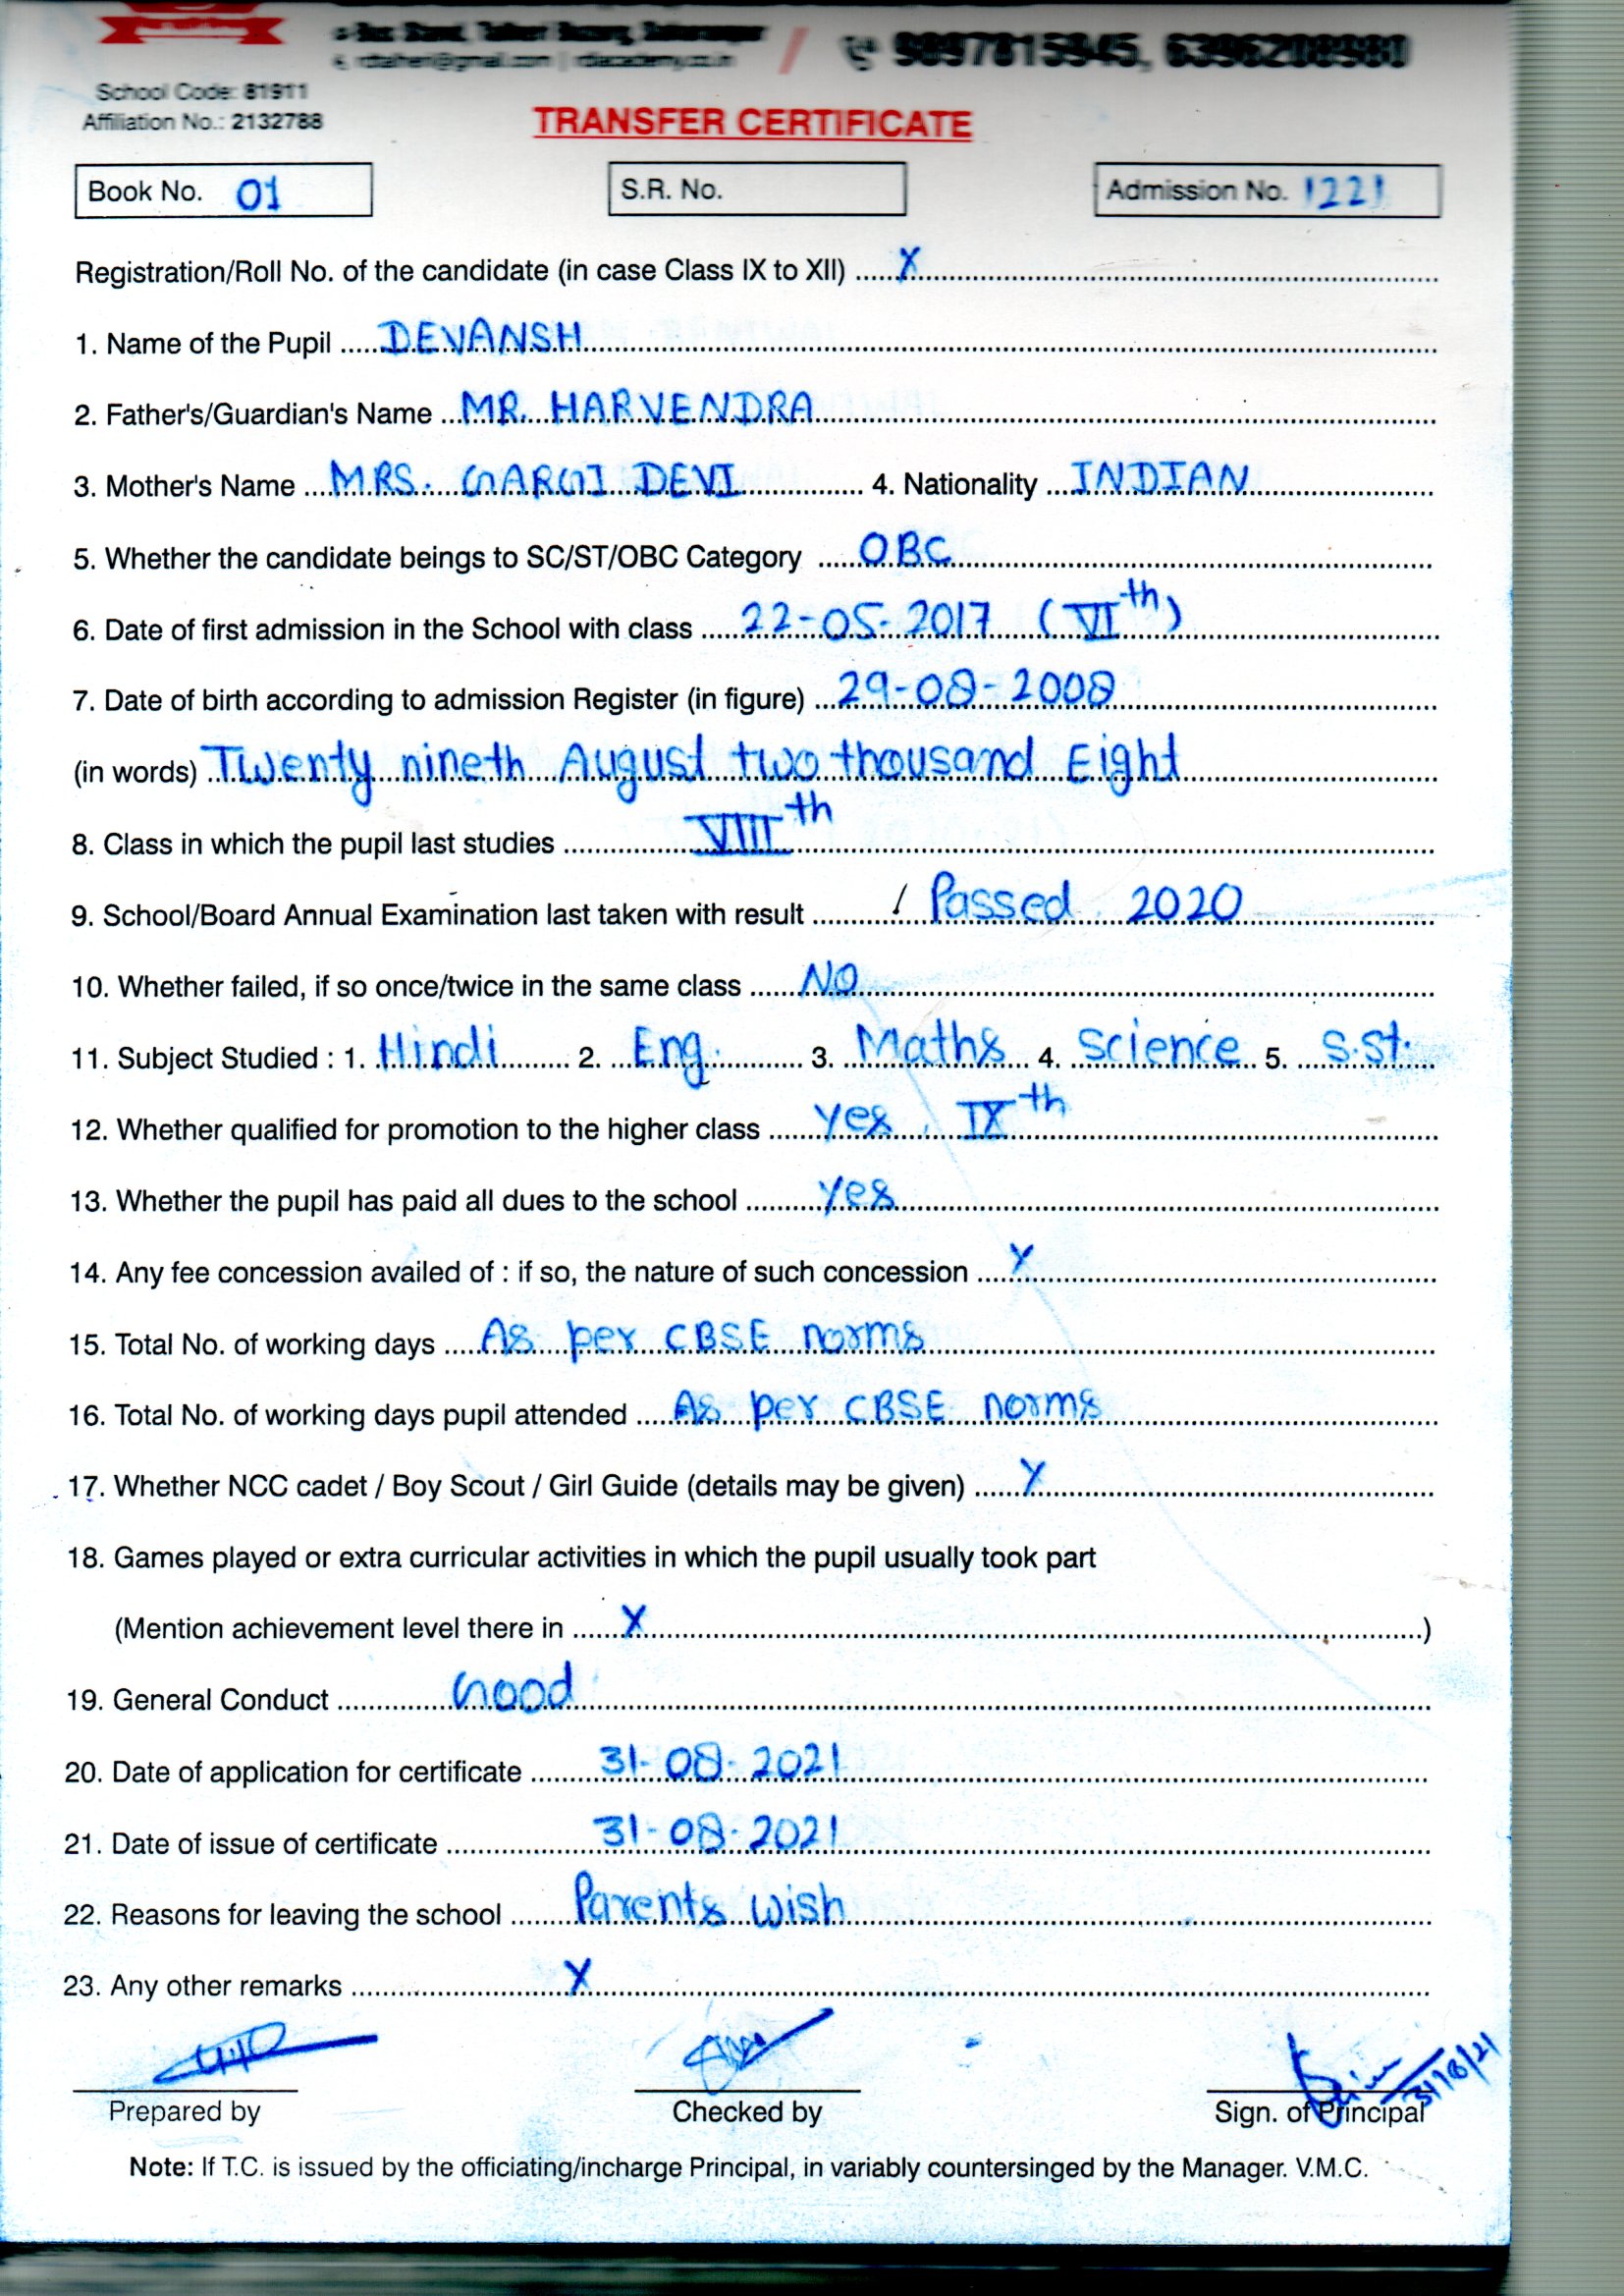 Bus Stand,
9897815945,
School Code: 81911
Affiliation No.: 2132788
TRANSFER CERTIFICATE
Book No. 01 S.R. No. Admission No. 1221
Registration/Roll No. of the candidate (in case Class IX to XII) ..... X
1. Name of the Pupil ..... DEVANSH
2. Father's/Guardian's Name ... MR. HARVENDRA
3. Mother's Name .... MRS. GARGI DEVI ..... 4. Nationality ... INDIAN
5. Whether the candidate beings to SC/ST/OBC Category ...... OBC
6. Date of first admission in the School with class ..... 22-05-2017 (VIth)
7. Date of birth according to admission Register (in figure) ... 29-08-2008
(in words) Twenty nineth August two thousand Eight
8. Class in which the pupil last studies ..... VIIIth
9. School/Board Annual Examination last taken with result ..... Passed 2020
10. Whether failed, if so once/twice in the same class ...... NO
11. Subject Studied : 1. Hindi 2. Eng. 3. Maths 4. Science 5. S.St.
12. Whether qualified for promotion to the higher class ...... yes, IXth
13. Whether the pupil has paid all dues to the school ..... yes
14. Any fee concession availed of : if so, the nature of such concession .... X
15. Total No. of working days ..... As per CBSE norms
16. Total No. of working days pupil attended ..... As per CBSE norms
17. Whether NCC cadet / Boy Scout / Girl Guide (details may be given) ..... X
18. Games played or extra curricular activities in which the pupil usually took part
(Mention achievement level there in ...... X ......)
19. General Conduct ..... Good
20. Date of application for certificate ..... 31-08-2021
21. Date of issue of certificate ..... 31-08-2021
22. Reasons for leaving the school ..... Parents wish
23. Any other remarks ..... X
31/8/21
Prepared by Checked by Sign. of Principal
Note: If T.C. is issued by the officiating/incharge Principal, in variably countersinged by the Manager. V.M.C.